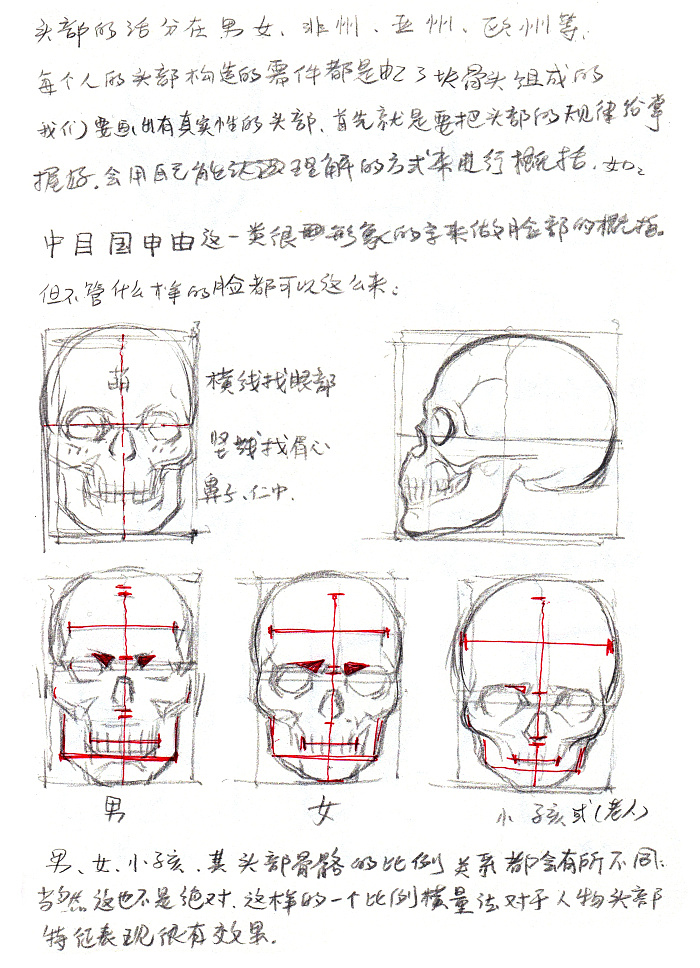 头部的话分在男女、非州、亚州、欧州等.
每个人的头部构造的零件都是由23块骨头组成的
我们要画出有真实性的头部、首先就是要把头部的规律给掌
握好.会用自己能达理解的方式来进行概括.如:
中目国申由这一类很形象的字来做脸部的概括。
但不管什么样的脸都可以这么来:
萌
横线找眼部
竖线找眉心
鼻子、仁中.
男
女
小孩或(老人)
男、女、小孩、其头部骨骼的比例关系都会有所不同;
当然这也不是绝对.这样的一个比例横量法对于人物头部
特征表现很有效果.